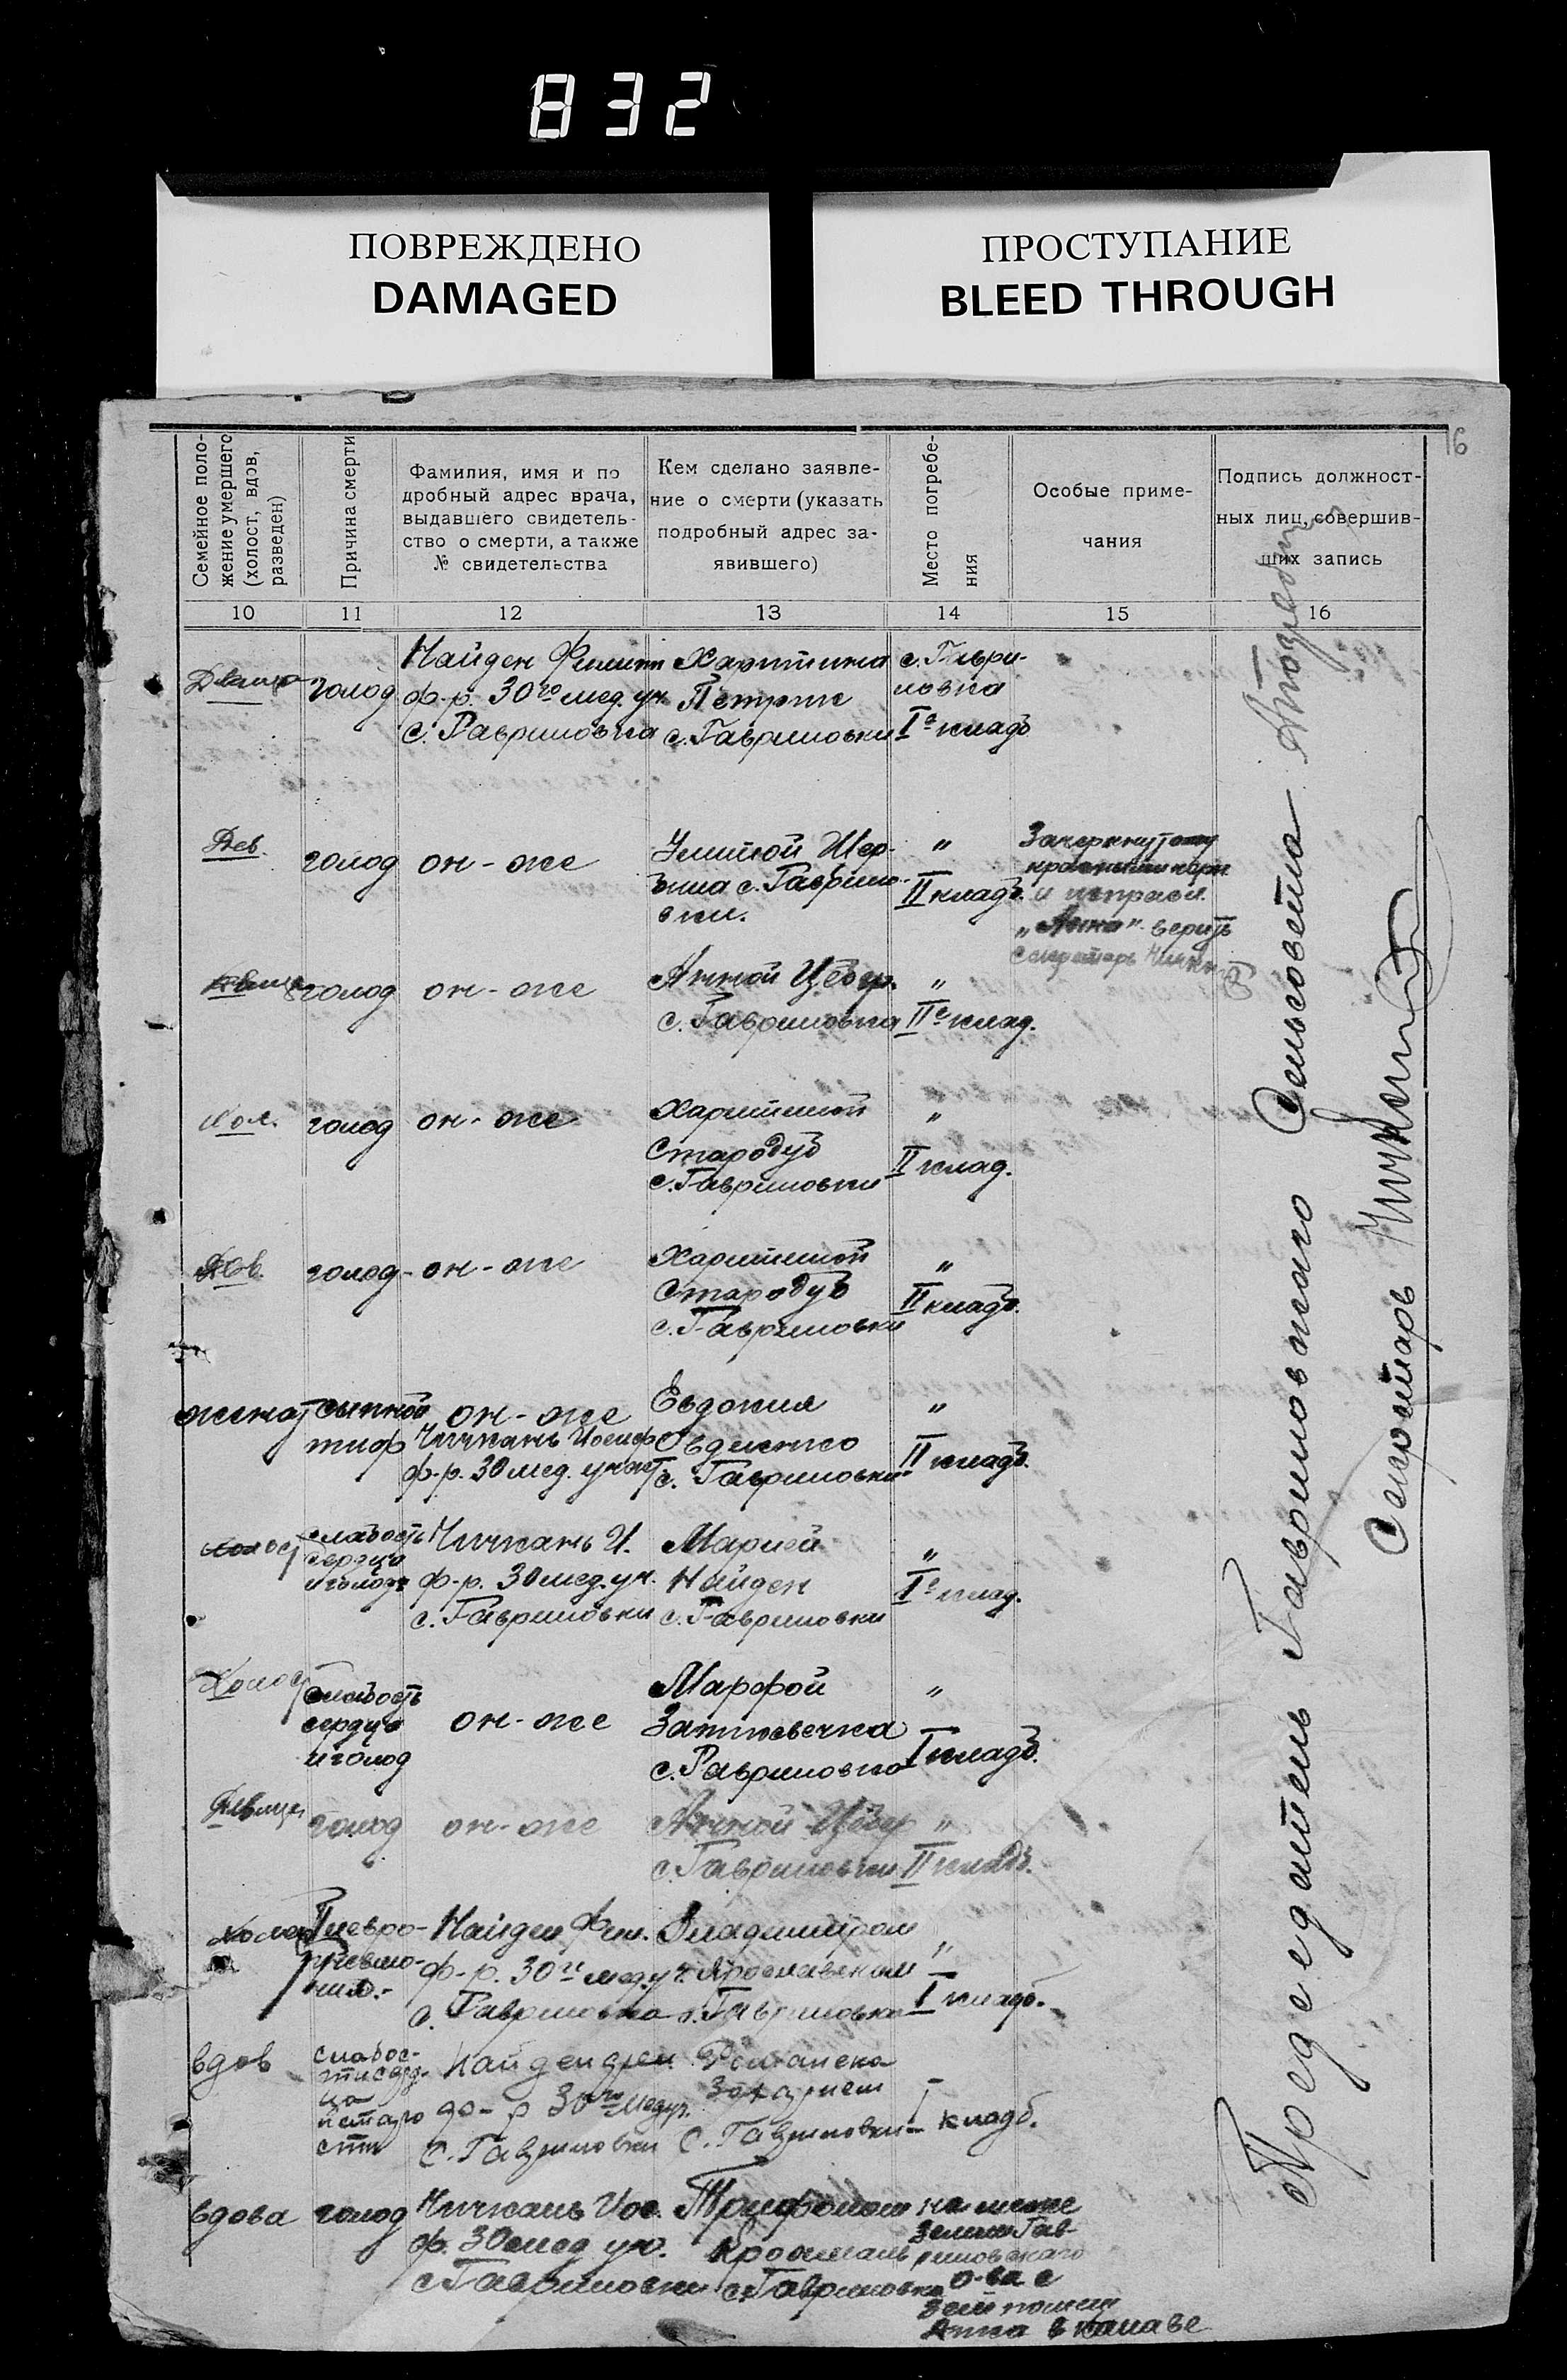 832
ПОВРЕЖДЕНО
DAMAGED
ПРОСТУПАНИЕ
BLEED THROUGH
16
Семейное поло-
жение умершего
(холост, вдов,
разведен)
Причина смерти
Фамилия, имя и по
дробный адрес врача,
выдавшего свидетель-
ство о смерти, а также
№ свидетельства
Кем сделано заявле-
ние о смерти (указать
подробный адрес за-
явившего)
Место погребе-
ния
Особые приме-
чания
Подпись должност-
ных лиц, совершив-
ших запись
10 11 12 13 14 15 16
голод
Найден
ф-р. 30го мед. уч.
с. Гавриловка
Харитина
с. Гавриловки
с. Гаври-
ловка
I е кладб
Дев.
голод
он-же
с. Гаврило-
вки.
"
II кладб.
Зачеркнутому
и исправл.
"Анна" верить
секретарь
голод
он-же
Анной Цебер.
с. Гавриловка
"
II е клад.
Хол.
голод
он-же
Харитиной
Стародуб
с. Гавриловки
"
II клад.
Дев.
голод
он-же
Харитиной
Стародуб
с. Гавриловки
"
II кладб.
женат
сыпной
тиф
он-же
Чичкань Иосиф
ф-р. 30 мед. участ
Евдокия
Овдиенко
с. Гавриловки
"
II кладб.
холост
слабость
сердца
и голод
Чичкань И.
ф-р. 30 мед. уч.
с. Гавриловки
Марией
Найден
с. Гавриловки
"
I е клад.
Холост
слабость
сердца
и голод
он-же
Марфой
с. Гавриловка
"
I кладб.
Девица
голод
он-же
Анной Цебер
с. Гавриловки
"
II кладб.
Плевро-
пневмо-
ния.-
Найден Фил.
ф-р. 30го мед. уч.
с. Гавриловка
Владимиром
Ярославским
с. Гавриловка
"
I кладб.
вдов
слабос-
ти серд-
ца
и старо
сти
Найден
ф-р 30го мед уч.
с. Гавриловки
Романенко
Захарием
с. Гавриловки
I кладб.
вдова
голод
Чичкань Иос.
ф. 30 мед уч.
с Гавриловки
Трифоном
с. Гавриловка
на меже
земли Гав-
риловского
о-ва с
зем
в канаве
Председатель Гавриловского Сельсовета
Секретарь